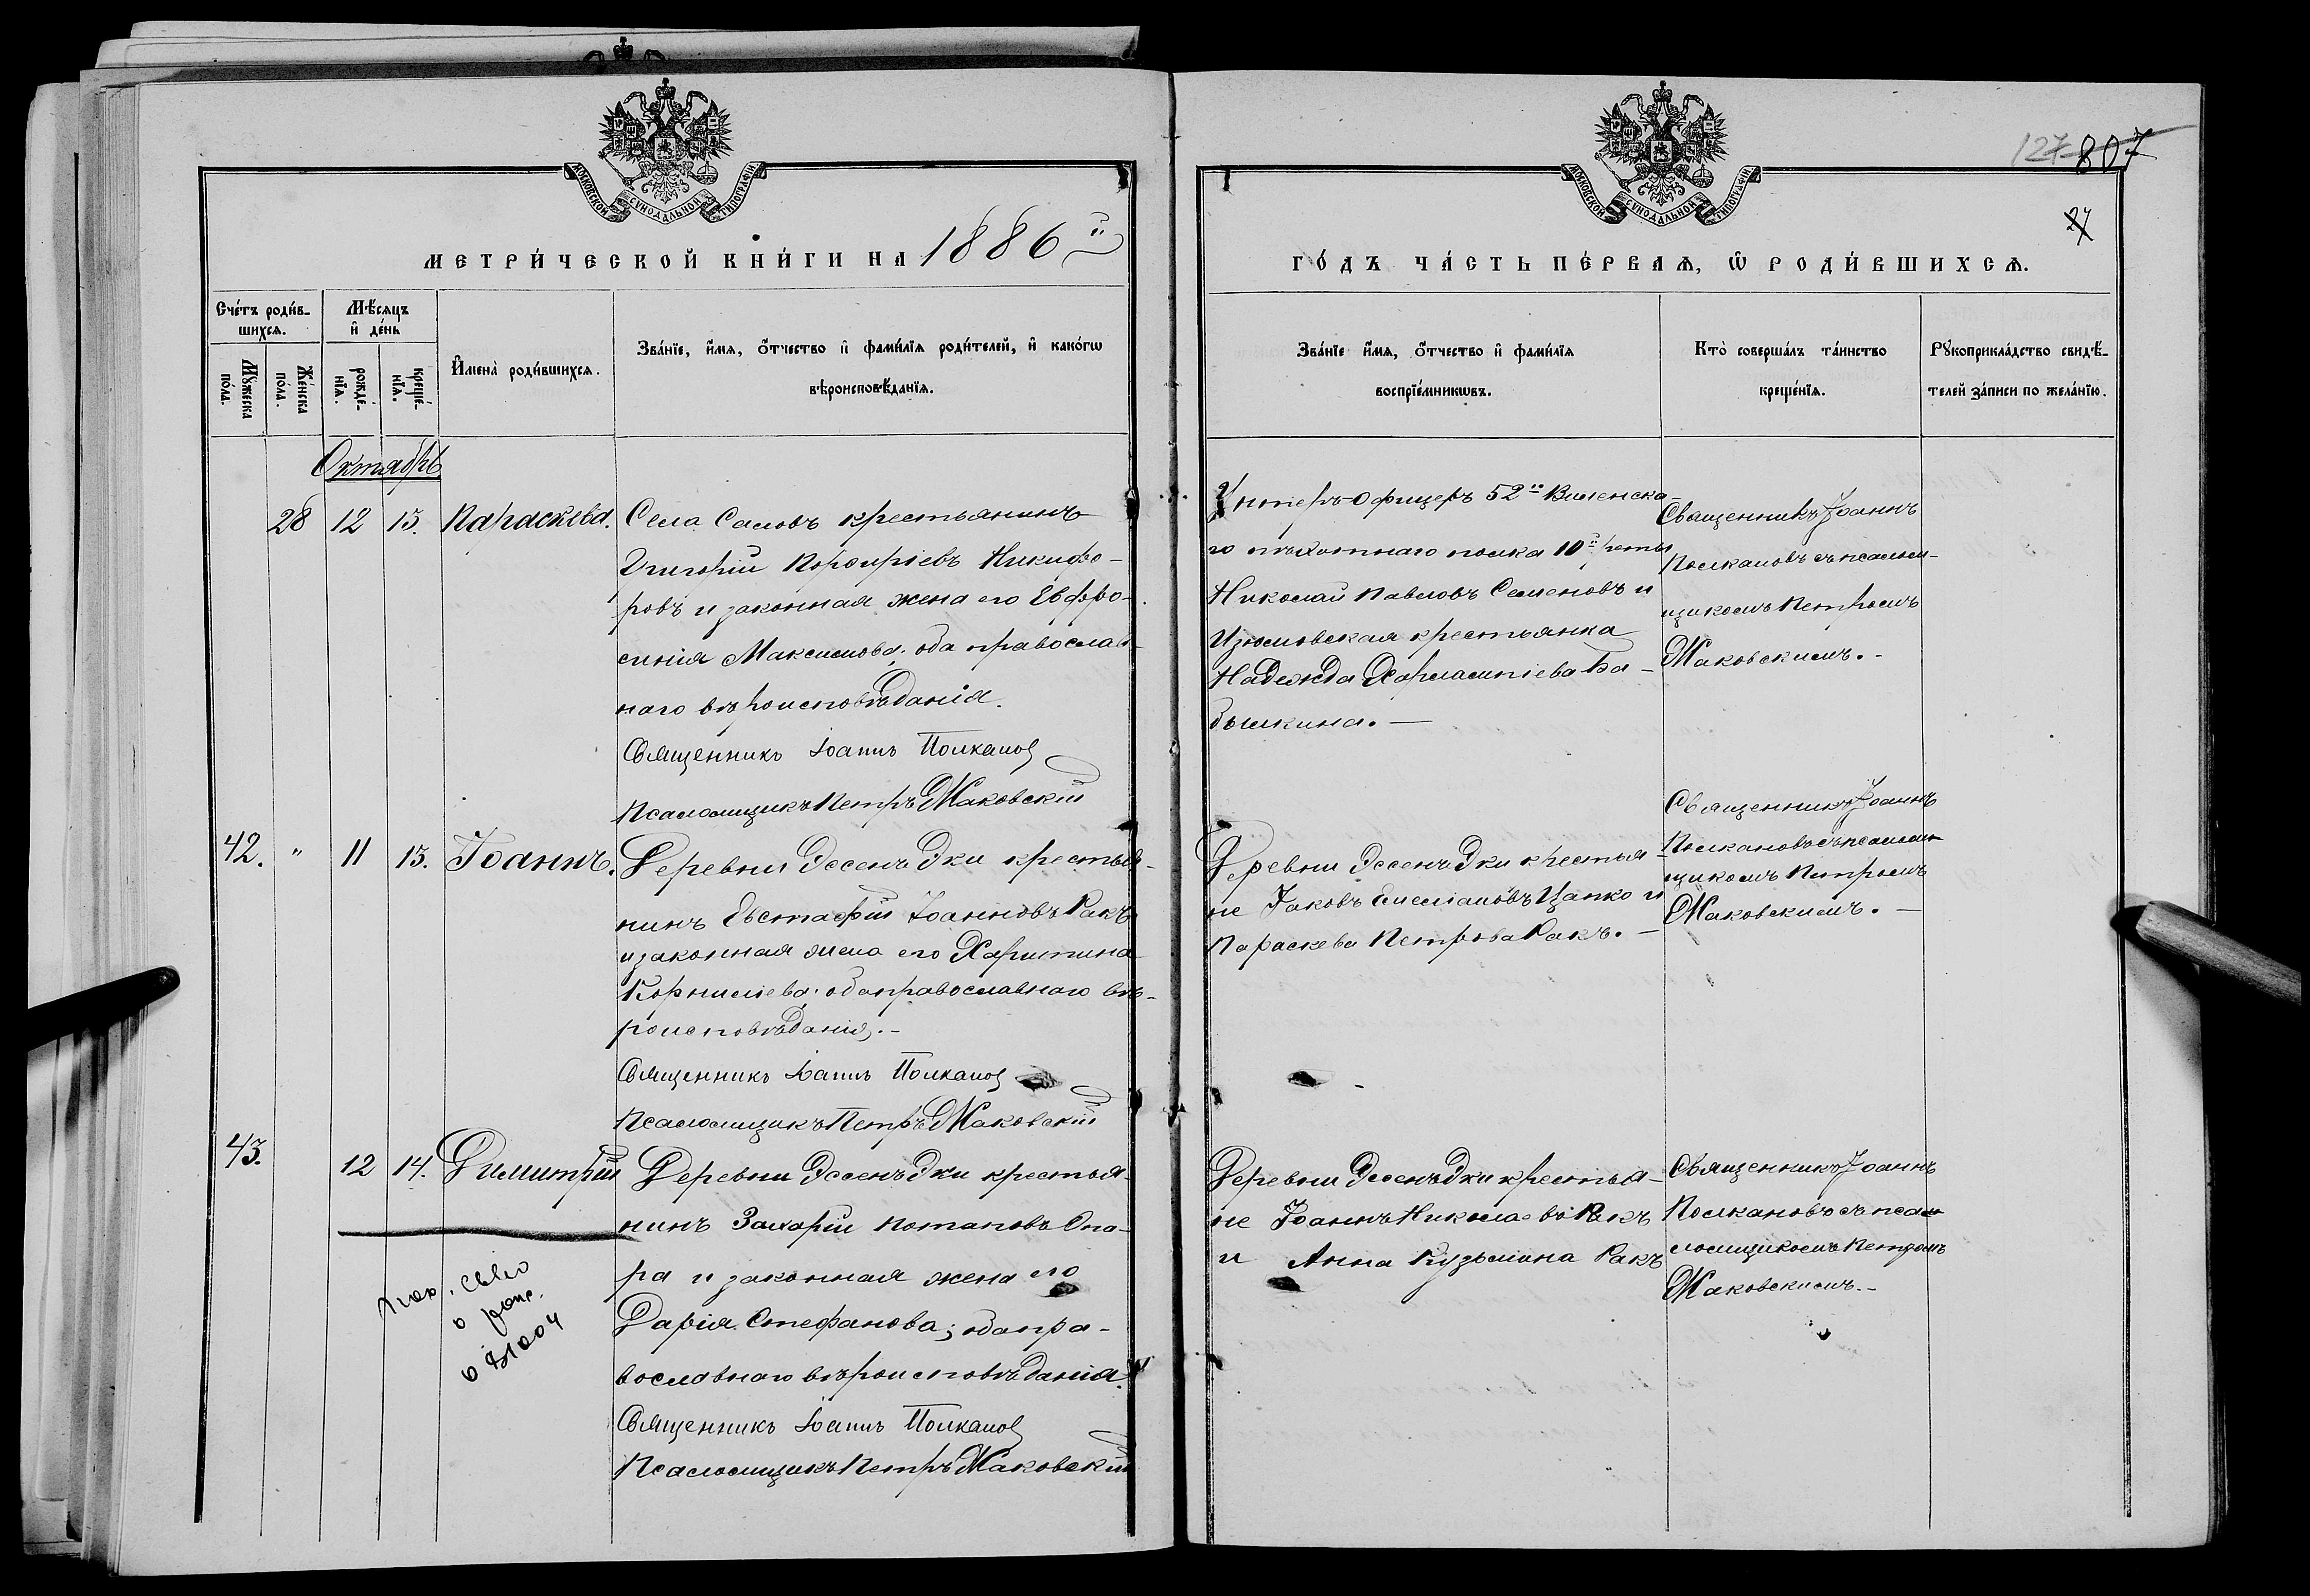 127 807
27
МОСКОВСКОЙ СѴНОДАЛЬНОЙ ТИПОГРАФІИ
МОСКОВСКОЙ СѴНОДАЛЬНОЙ ТИПОГРАФІИ
МЕТРИ́ЧЕСКОЙ КНИ́ГИ НА 1886й
ГО́ДЪ ЧА́СТЬ ПЕ́РВАѦ, Ѽ РОДИ́ВШИХСѦ.
Сче́тъ роди́в-
шихсѧ.
Мꙋ́жеска
по́ла.
Же́нска
по́ла.
Мѣ́сѧцъ
и҆ де́нь
рожде́-
нїѧ.
креще́-
нїѧ.
И҆мена̀ роди́вшихсѧ.
Зва́нїе, и҆́мѧ, ѻ҆́тчество и҆ фами́лїѧ роди́телей, и҆ како́гѡ
вѣроисповѣ́данїѧ.
Зва́нїе и҆́мѧ, ѻ҆́тчество и҆ фами́лїѧ
воспрїе́мникѡвъ.
Кто̀ соверша́лъ та́инство
креще́нїѧ.
Рꙋкоприкла́дство свидѣ́-
телей за́писи по жела́нїю.
Октябрь
28 12 13. Параскева.
Села Саловъ крестьянинъ
Григорій Порфиріевъ Никифо-
ровъ и законная жена его Евфро-
синія Максимова; оба православ-
наго вѣроисповѣданія.
Священникъ Іоаннъ Полкановъ
Псаломщикъ Петръ Маковскій
Унтеръ-Офицеръ 52го Виленска-
го пѣхотнаго полка 10й роты
Николай Павловъ Семеновъ и
Изюмовская крестьянка
Надежда Харлампіева Ба-
бышкина. —
Священникъ Іоаннъ
Полкановъ съ псалом-
щикомъ Петромъ
Маковскимъ. -
42. " 11 13. Іоаннъ.
Деревни Эссенъ Эки крестья-
нинъ Евстафій Іоанновъ Ракъ
и законная жена его Харитина
Корнилиева; оба православнаго вѣ-
роисповѣданія. -
Священникъ Іоаннъ Полкановъ
Псаломщикъ Петръ Маковскій
Деревни Эссенъ Эки крестья-
не Іаковъ Емеліановъ Цапко и
Параскева Петрова Ракъ. -
Священникъ Іоаннъ
Полкановъ съ псалом-
щикомъ Петромъ
Маковскимъ. —
43. 12 14. Димитрій
Деревни Эссенъ Эки крестья-
нинъ Захарій Потаповъ Опа-
ра и законная жена его
Дарія Стефанова; оба пра-
вославнаго вѣроисповѣданія.
Священникъ Іоаннъ Полкановъ
Псаломщикъ Петръ Маковскій
Деревни Эссенъ Эки крестья-
не Іоаннъ Николаевъ Ракъ
и Анна Кузьмина Ракъ
Священникъ Іоаннъ
Полкановъ съ псал-
ломщикомъ Петромъ
Маковскимъ. -